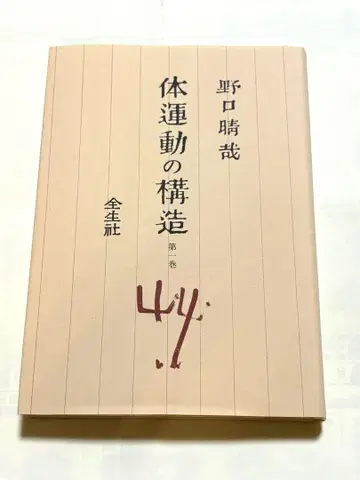 野口晴哉
体運動の構造
第一巻
全生社